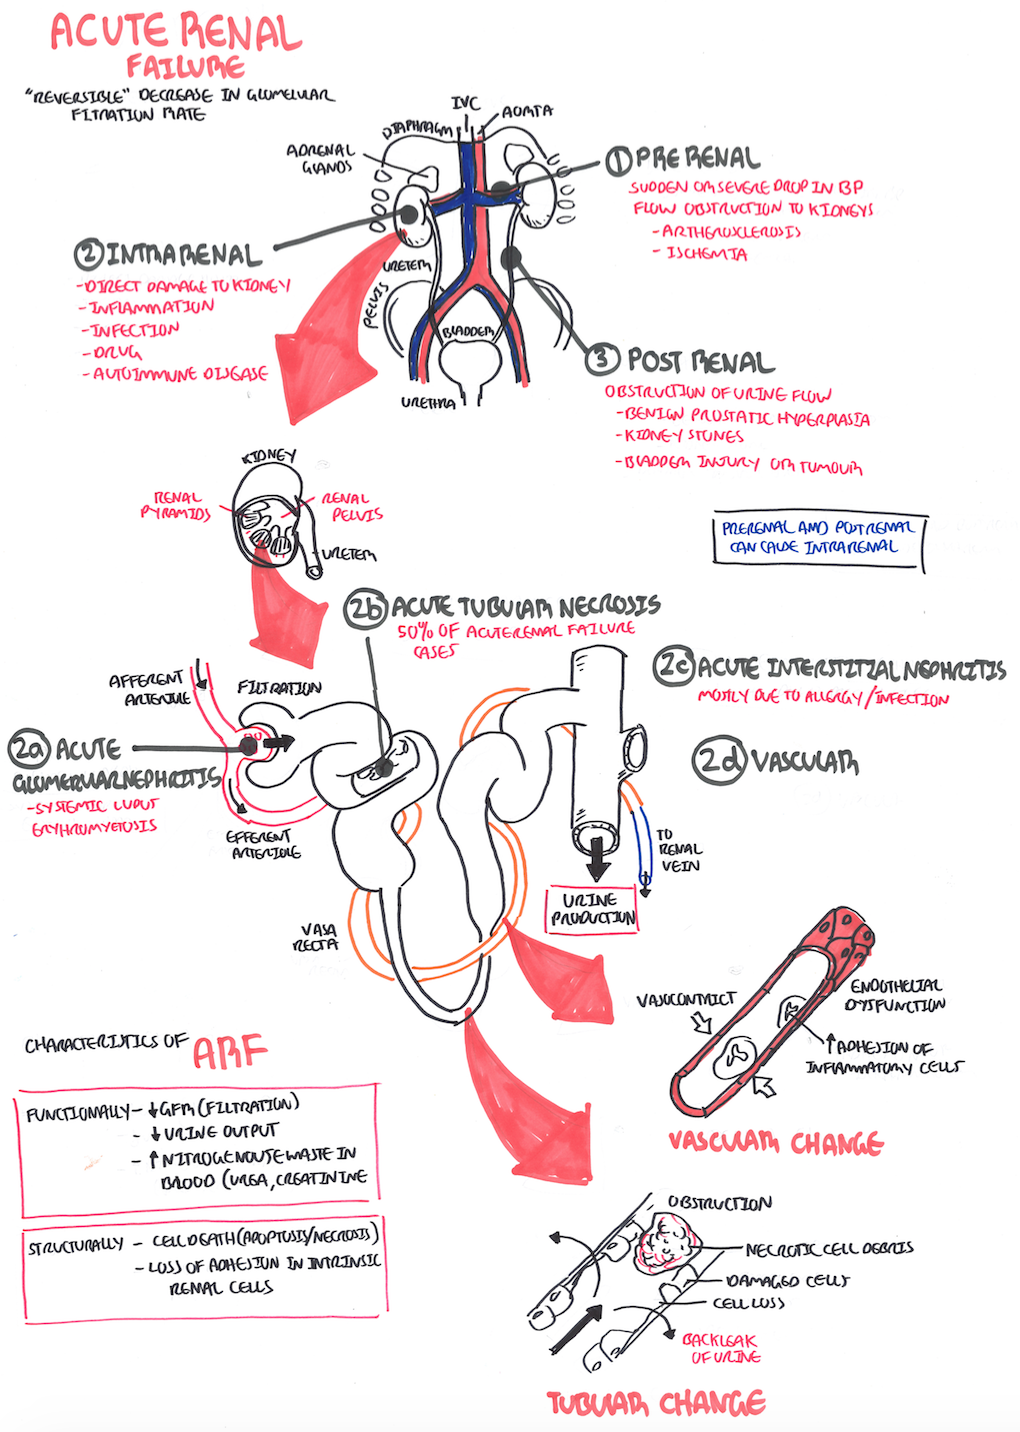 ACUTE RENAL
FAILURE
"REVERSIBLE" DECREASE IN GLOMELULAR
FILTRATION RATE
IVC
AORTA
DIAPHRAGM
ADRENAL
GLANDS
URETER
PELVIS
BLADDER
URETHRA
1 PRERENAL
SUDDEN OR SEVERE DROP IN BP
FLOW OBSTRUCTION TO KIDNEYS
- ARTHEROSCLEROSIS
- ISCHEMIA
2 INTRARENAL
- DIRECT DAMAGE TO KIDNEY
- INFLAMMATION
- INFECTION
- DRUG
- AUTOIMMUNE DISEASE
3 POST RENAL
OBSTRUCTION OF URINE FLOW
- BENIGN PROSTATIC HYPERPLASIA
- KIDNEY STONES
- BLADDER INJURY OR TUMOUR
PRERENAL AND POSTRENAL
CAN CAUSE INTRARENAL
KIDNEY
RENAL
PYRAMIDS
RENAL
PELVIS
URETER
2b ACUTE TUBULAR NECROSIS
50% OF ACUTE RENAL FAILURE
CASES
2c ACUTE INTERSTITIAL NEPHRITIS
MOSTLY DUE TO ALLERGY/INFECTION
2d VASCULAR
AFFERENT
ARTERIOLE
FILTRATION
2a ACUTE
GLOMERULARNEPHRITIS
- SYSTEMIC LUPUT
ERYHROMYETOSIS
EFFERENT
ARTERIOLE
VASA
RECTA
TO
RENAL
VEIN
URINE
PRODUCTION
VASOCONTRICT
ENDOTHELIAL
DYSFUNCTION
↑ ADHESION OF
INFLAMMATORY CELLS
VASCULAR CHANGE
CHARACTERISTICS OF ARF
FUNCTIONALLY - ↓ GFR (FILTRATION)
- ↓ URINE OUTPUT
- ↑ NITROGENOUTE WASTE IN
BLOOD (UREA, CREATININE
STRUCTURALLY - CELL DEATH (APOPTOSIS/NECROSIS)
- LOSS OF ADHESION IN INTRINSIC
RENAL CELLS
OBSTRUCTION
NECROTIC CELL DEBRIS
DAMAGED CELLS
CELL LOSS
BACKLEAK
OF URINE
TUBULAR CHANGE